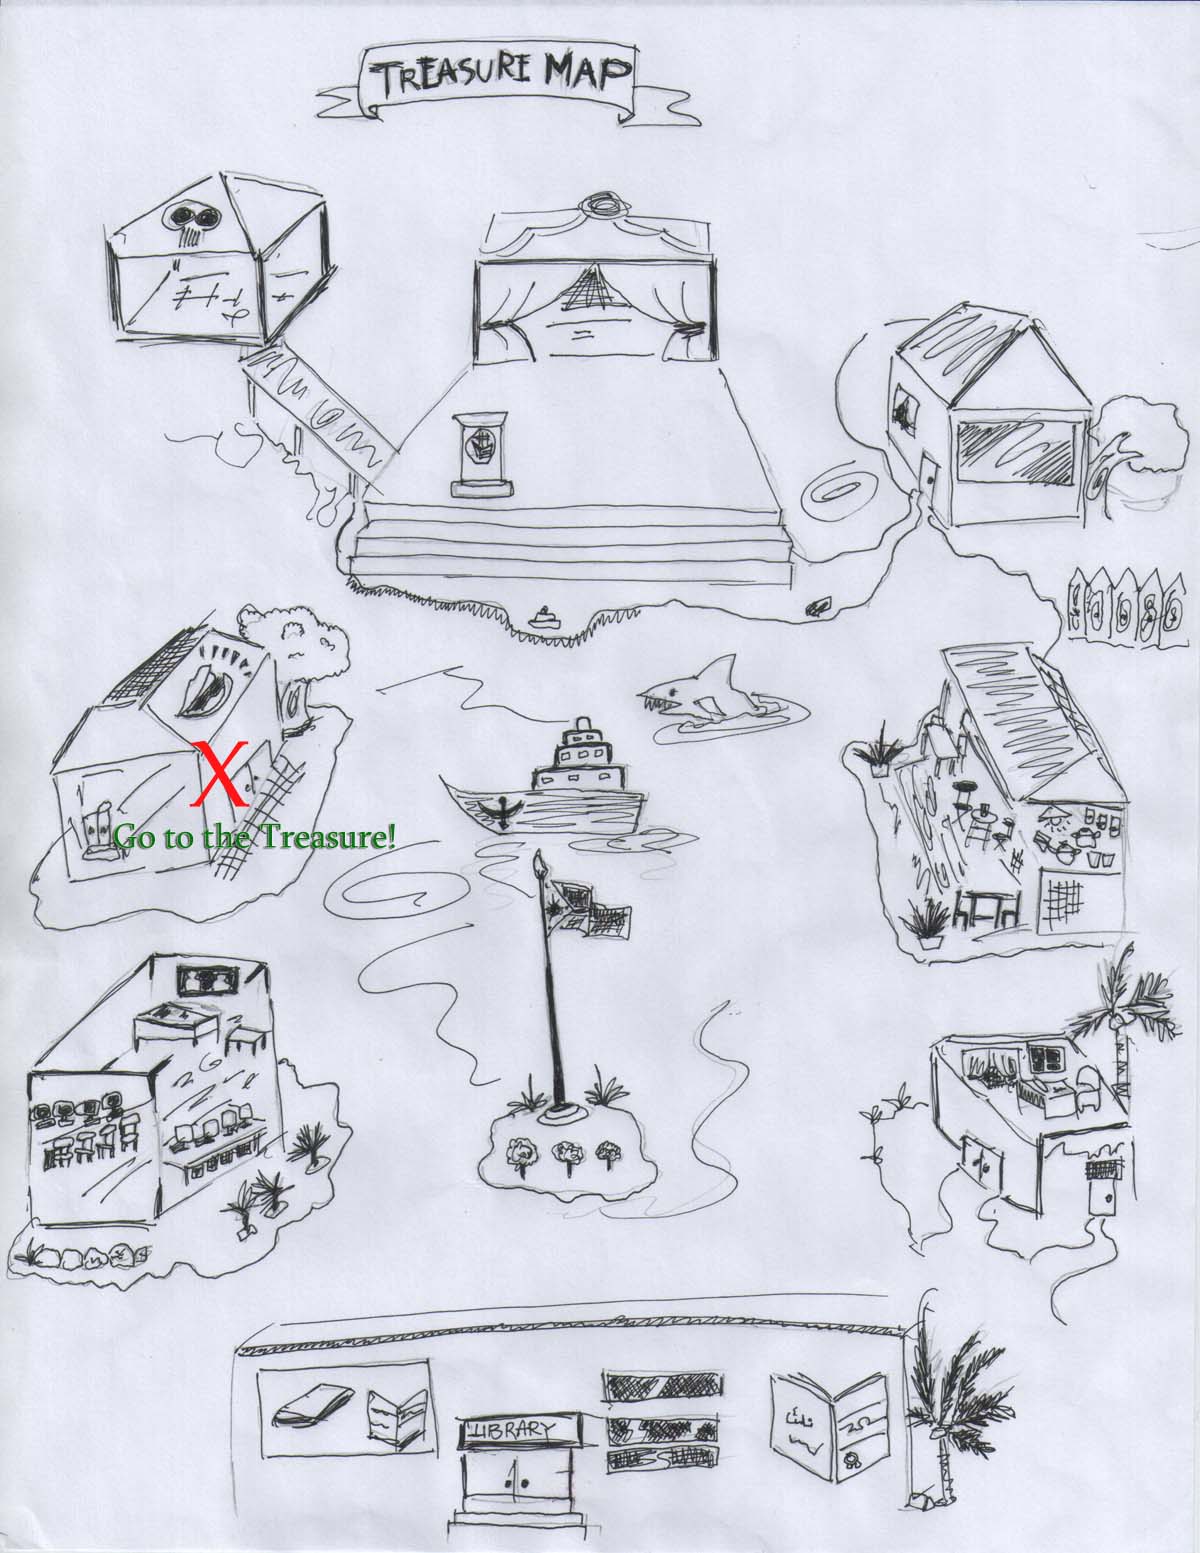 TREASURE MAP
X
Go to the Treasure!
LIBRARY